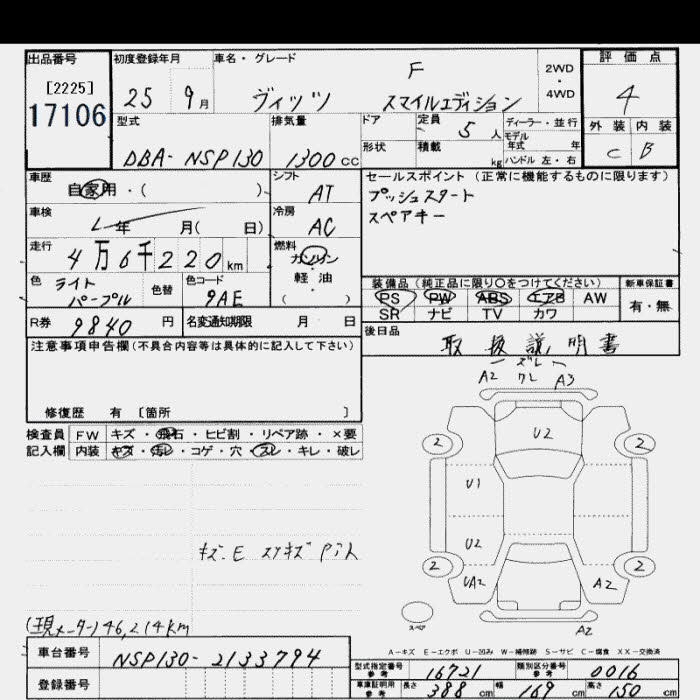 出品番号
[2225]
17106
初度登録年月
25 9月
車名・グレード
F
ヴィッツ スマイルエディション
2WD
・
4WD
評価点
4
外装 内装
C B
型式
DBA-NSP130
排気量
1300cc
ドア
形状
定員 5人
積載 kg
ディーラー・並行
モデル
年式 年
ハンドル 左・右
車歴
自家用・( )
車検
年 月( 日)
走行
4万6千220km
色 ライト
パープル
色替
色コード
9AE
シフト
AT
冷房
AC
燃料
ガソリン
・
軽油
( )
セールスポイント (正常に機能するものに限ります)
プッシュスタート
スペアキー
装備品 (純正品に限り○をつけてください)
PS PW ABS エアB AW
SR ナビ TV カワ
新車保証書
有・無
R券 9840円
名変通知期限 月 日
後日品
取扱説明書
注意事項申告欄 (不具合内容等は具体的に記入して下さい)
修復歴 有 〔箇所 〕
検査員 FW キズ・飛石・ヒビ割・リペア跡・×要
記入欄 内装 キズ・汚レ・コゲ・穴・スレ・キレ・破レ
キズ.E スリキズ
(現メーター)46,214km
車台番号
NSP130-2133794
登録番号
ズレ
A2 クレ A3
U2
2 2
U1
U2
2 2
UA2 A2
スペア
A2
A-キズ E-エクボ U-凹み W-補修跡 S-サビ C-腐食 XX-交換済
型式指定番号
参考
16721
類別区分番号
参考
0016
車庫証明用
参考
長さ 388cm 幅 169cm 高さ 150cm